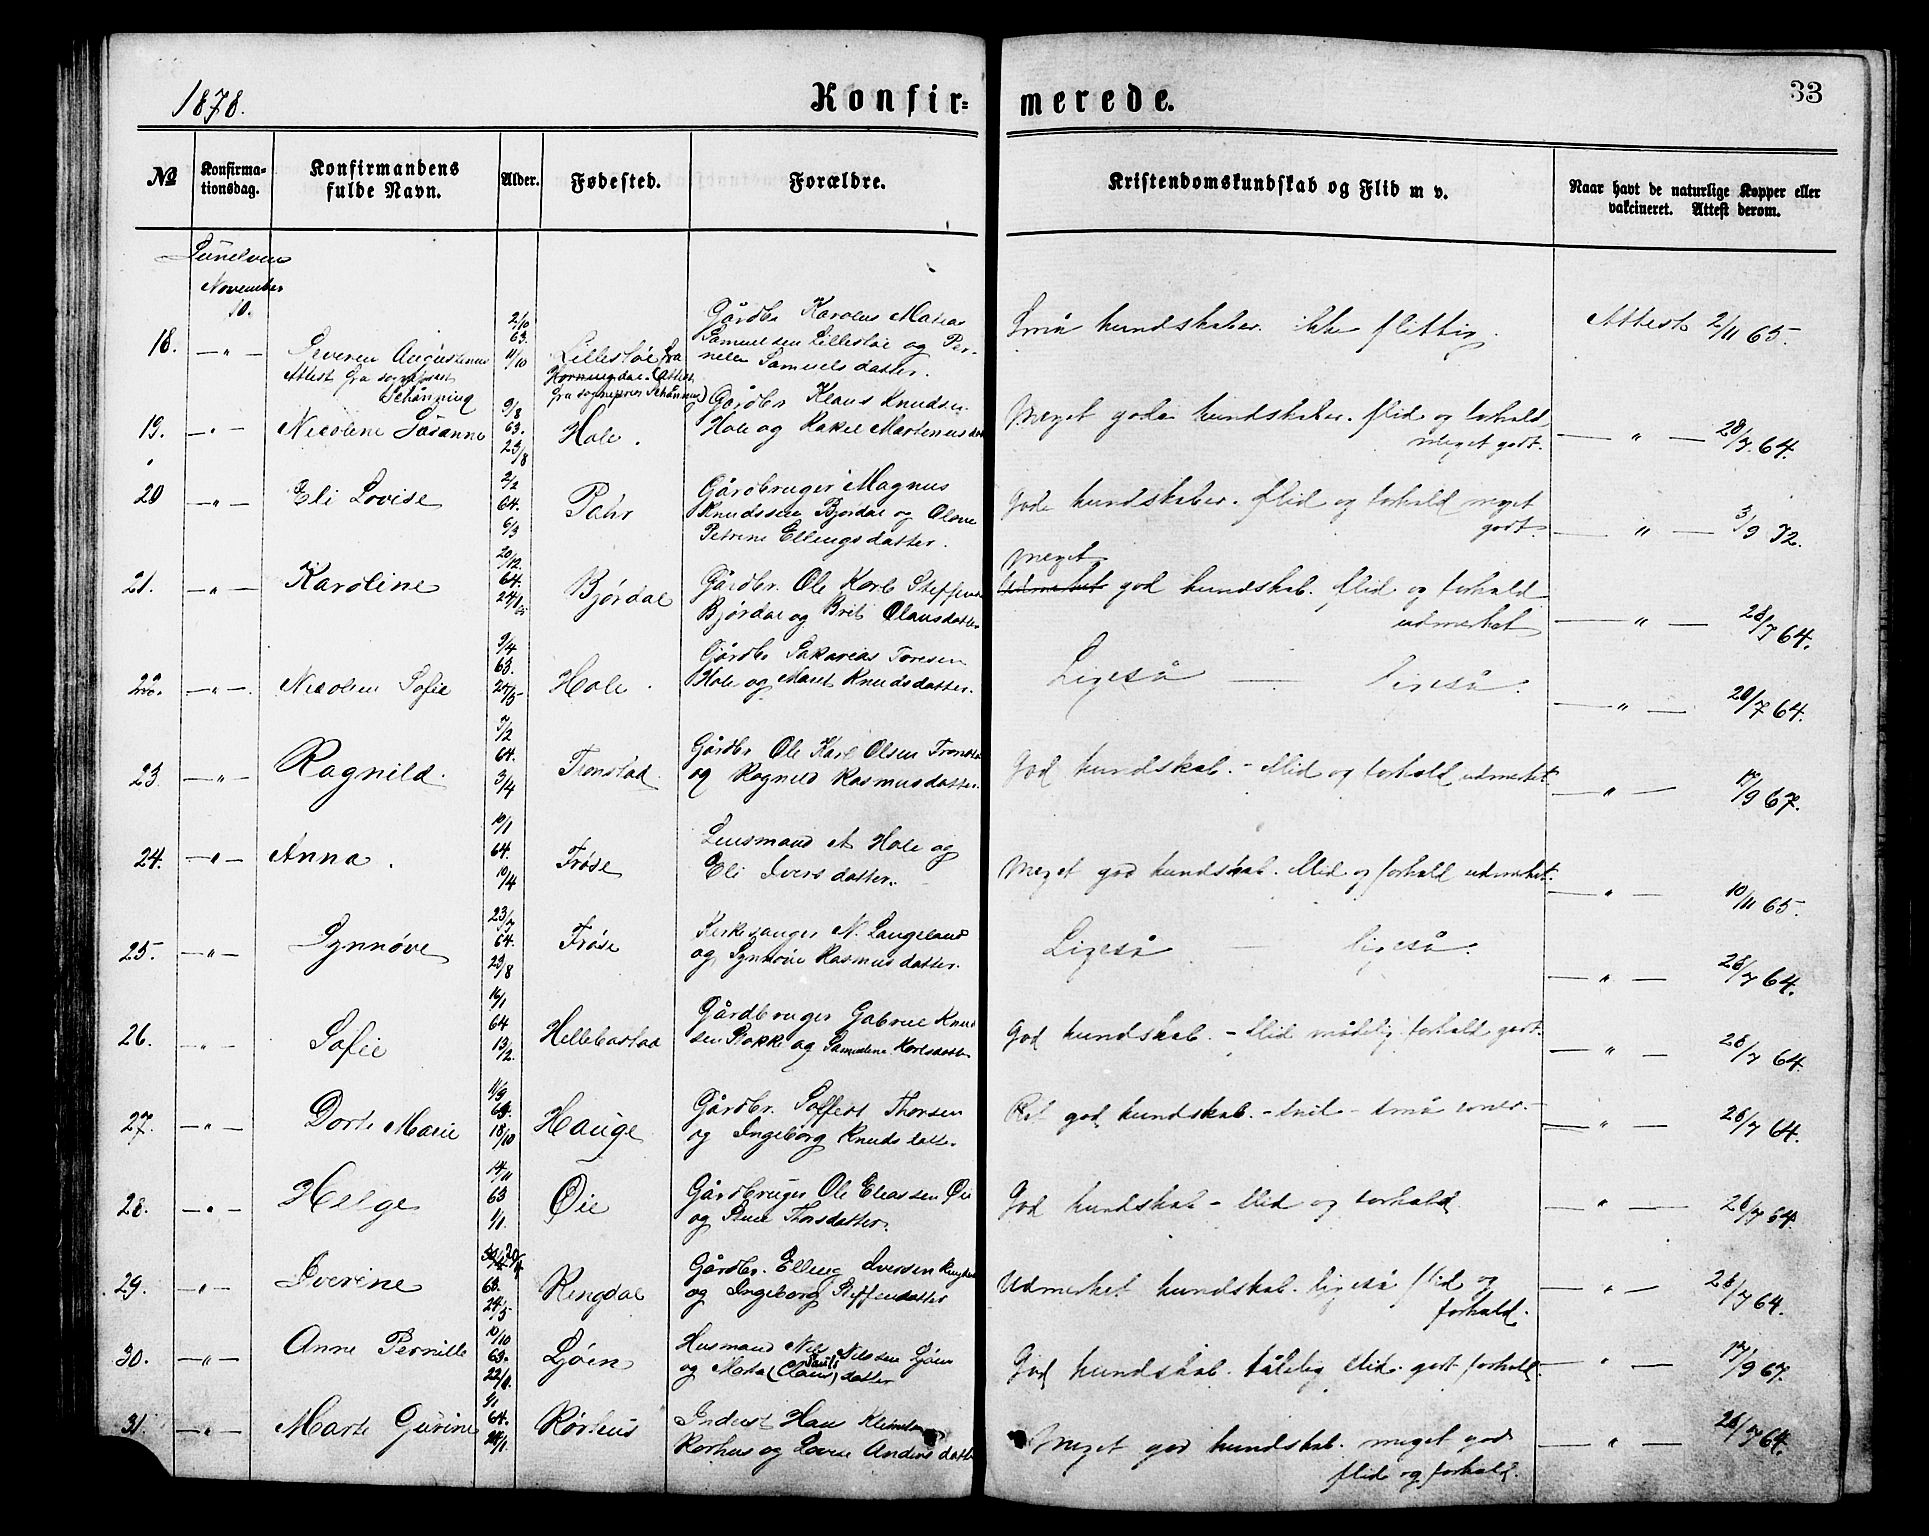 1878.
Konfir= merede.
33
No
Konfirma-
tionsdag.
Konfirmandens
fulde Navn.
Alder.
Fødested.
Forældre.
Kristendomskundskab og Flid m v.
Naar havt de naturlige Kopper eller
vakcineret. Attest derom.
Sunelven
November
10.
18. — " — Severen Augustinus
Attest fra sognepræst
Schånning
2/10
63.
11/10
Lillestøe fra
Horningdal (Attest
fra sognepræst Schånning)
Gårdbr. Karolus Matias
Samuelsen Lillestøe og Per-
nele Samuelsdatter.
Små kundskaber. ikke flittig.
Attest 2/11 65.
19. — " — Nicoline Susanne
9/8
63.
23/8
Hole.
Gårdbr Klaus Knudsen
Hole og Rakel Martinusdat
Meget gode kundskaber. flid og forhold
meget godt.
— " — 28/7 64.
20 — " — Eli Lovise
2/2
64.
6/3
Gårdbruger Magnus
Knudssen Bjørdal og Oline
Petrine Ellingsdatter.
Gode kundskaber. flid og forhold meget
godt.
— " — 3/9 72.
21. — " — Karoline
20/12.
64.
Bjørdal
Gårdbr. Ole Korl Steffens
Bjørdal og Brit Olausdatter
meget
Udmerket god kundskab. flid og forhold
udmerket
— " — 28/7 64.
22. — " — Nicoline Sofie
9/4
63.
25/5
Hole.
Gårdbr Sakarias Toresen
Hole og Maret Knudsdatter.
Ligeså — ligeså.
— " — 28/7 64.
23 — " — Ragnild.
7/2
64.
3/4
Tronstad.
Gårdbr. Ole Karl Olsen Tronsta
og Ragnild Rasmusdatter.
God kundskab. - flid og forhold udmerket.
— " — 17/9 67.
24. — " — Anna.
10/1
64.
10/4
Frøse
Lensmand A Hole og
Eli Iversdatter.
Meget god kundskab. flid og forhold udmerket.
— " — 10/11 65.
25. — " — Synnøve
23/7
64.
23/8
Frøse
Kirkesanger N. Langeland
og Synnøve Rasmusdatter.
Ligeså — ligeså.
— " — 28/7 64.
26. — " — Sofie
16/1
64
13/2.
Hellebostad
Gårdbruger Gabriel Knud
sen Stokke og Samueline Korlsdatt
God kundskab. - flid mådelig forhold godt.
— " — 28/7 64.
27. — " — Dorte Marie
11/9
63.
18/10
Hauge
Gårdbr. Soffert Thorsen
og Ingeborg Knudsdatte.
Ret god kundskab. -
— " — 28/7 64.
28. — " — Helge
14/11
63
1/1.
Øie
Gårdbruger Ole Eliassen Øie
og Stine Thorsdatter.
God kundskab - flid og forhold
— " — 28/7 64.
29. — " — Iverine
63.
24/5
Ringdal
Gårdbr. Elling Iverssen Ringdal
og Ingeborg Steffensdatter
Udmerket kundskab. ligeså flid og
forhold.
— " — 28/7 64.
30. — " — Anne Pernille
10/10
63.
22/11.
Ljøen
Husmand Nils Nilssen Ljøen
og Marta (Claus) datter
God kundskab. tålelig flid. godt forhold.
— " — 17/9 67.
31. — " — Marte Gurine
1/1
64.
24/1.
Rørhus
Inderst Hans
Rørhus og Lovise Andersdatte
Meget god kundskab. meget god
flid og forhold.
— " — 28/7 64.